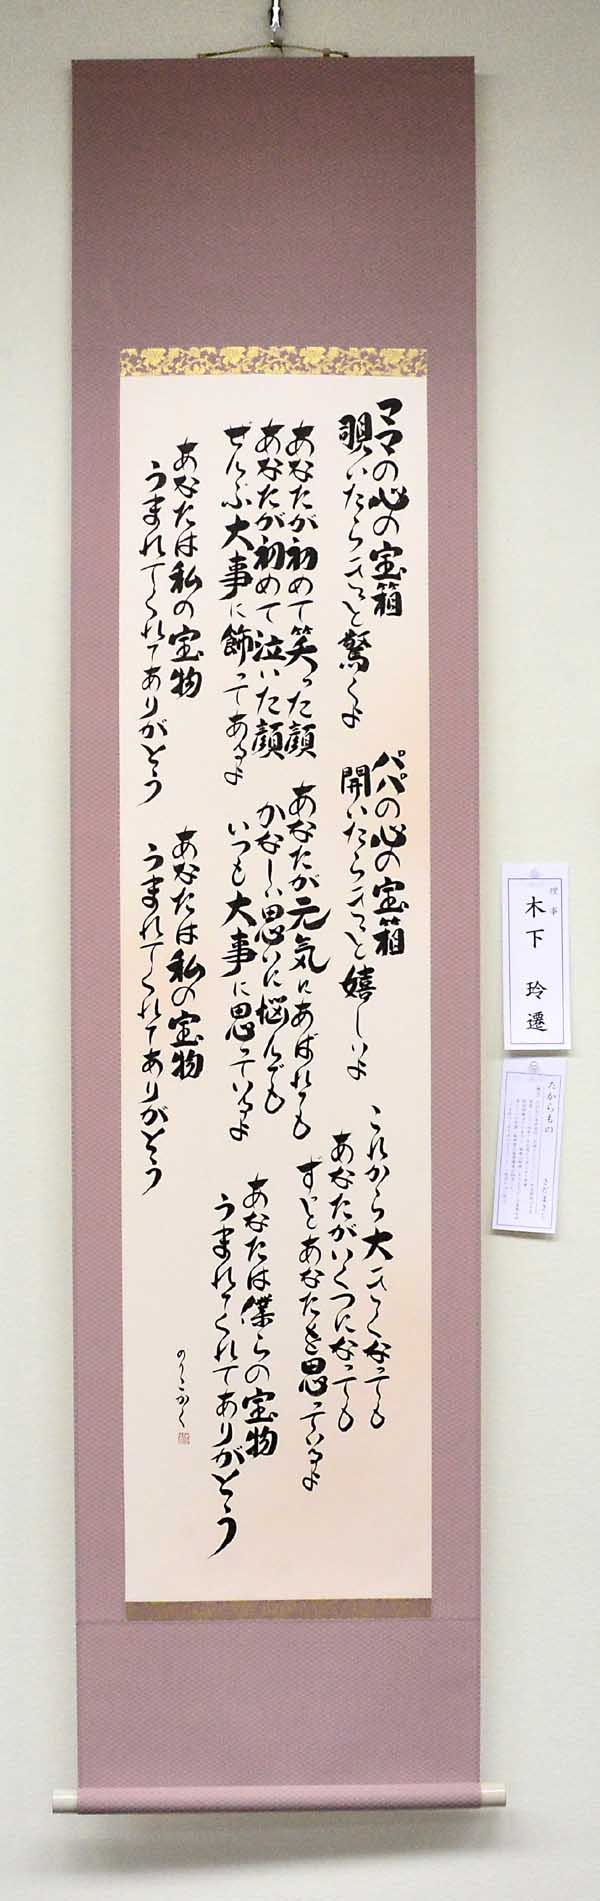 ママの心の宝箱
覗いたらきっと驚くよ
あなたが初めて笑った顔
あなたが初めて泣いた顔
ぜんぶ大事に飾ってあるよ
あなたは私の宝物
うまれてくれてありがとう
パパの心の宝箱
開いたらきっと嬉しいよ
あなたが元気にあばれても
かなしい思いに悩んでも
いつも大事に思っているよ
あなたは私の宝物
うまれてくれてありがとう
これから大きくなっても
あなたがいくつになっても
ずっとあなたを思っているよ
あなたは僕らの宝物
うまれてくれてありがとう
理事
木下 玲遷
たからもの
さだまさし